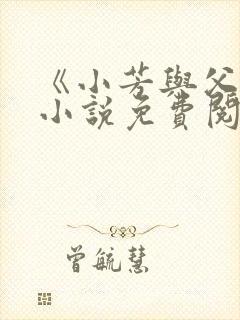 《小芳與父
小說免費閱
曾毓慧